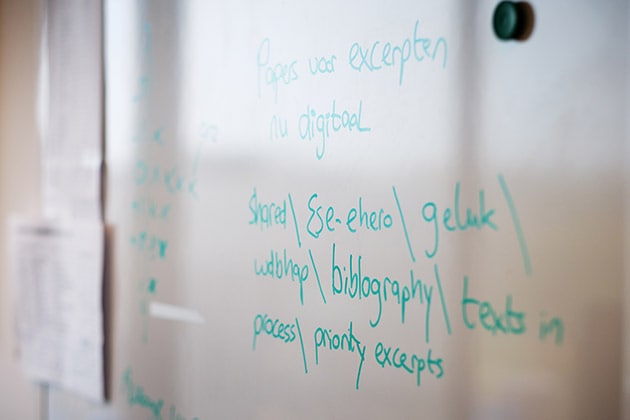 Papers voor excerpten
nu digitaal
shared\ Ese-ehero\ geluk\
wdbhap\ biblography\ texts in
process\ priority excerpts